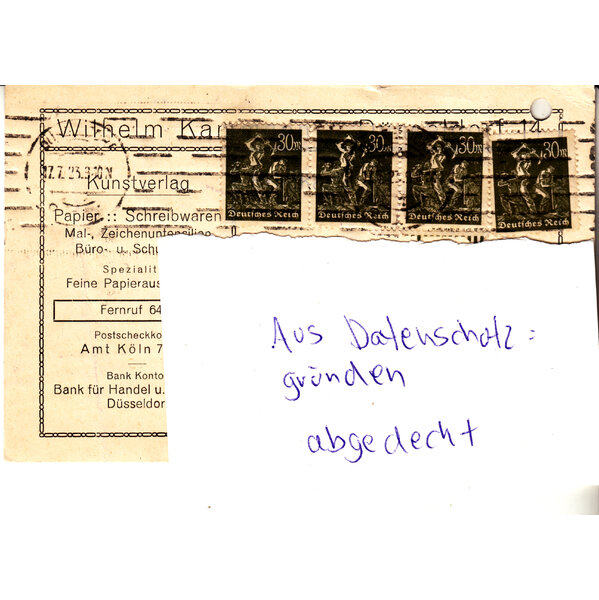 Wilhelm Kar
14
30 M 30 M 30 M 30 M
Deutsches Reich Deutsches Reich Deutsches Reich Deutsches Reich
Kunstverlag
Papier :: Schreibwaren
Mal-, Zeichenutensilien
Büro- u. Schu
Spezialit
Feine Papieraus
Fernruf 64
Postscheckko
Amt Köln 7
Bank Konto
Bank für Handel u.
Düsseldor
Aus Datenschutz=
gründen
abgedeckt